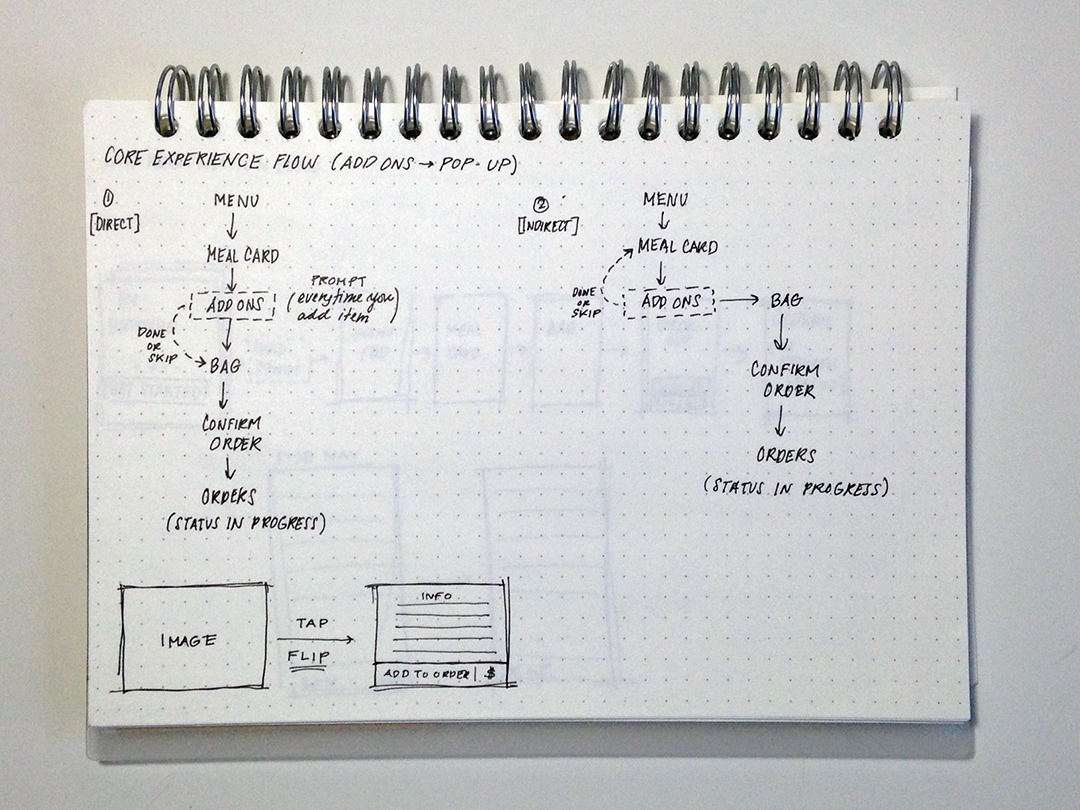 CORE EXPERIENCE FLOW (ADD ONS → POP-UP)
①
[DIRECT]
MENU
MEAL CARD
ADD ONS
PROMPT
(everytime you
add item)
DONE
OR
SKIP
BAG
CONFIRM
ORDER
ORDERS
(STATUS IN PROGRESS)
②
[INDIRECT]
MENU
MEAL CARD
ADD ONS
DONE
OR
SKIP
BAG
CONFIRM
ORDER
ORDERS
(STATUS IN PROGRESS)
IMAGE
TAP
FLIP
INFO
ADD TO ORDER | $